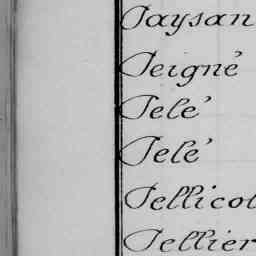 Paysan
Peigné
Pelé
Pelé
Pellicot
Pellier